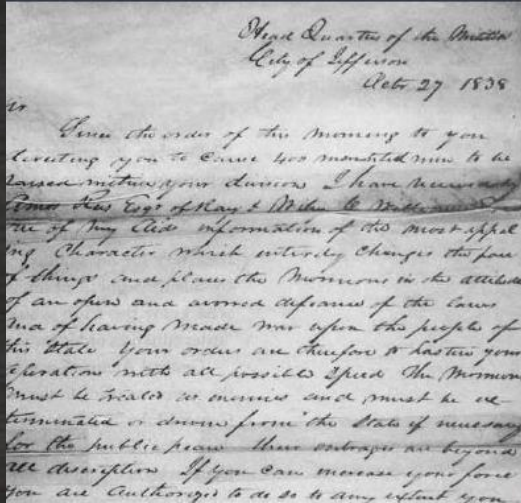 Head Quarters of the Militia
City of Jefferson
Octr 27 1838
Sir
Since the order of this morning to you
directing you to cause 400 mounted men to be
raised within your division I have received by
Amos Rees Esqr of Ray & Wiley C Williams
one of my aids information of the most appal
ing character which entirely changes the face
of things and places the Mormons in the attitude
of an open and avowed defiance of the laws
and of having made war upon the people of
this State Your orders are therefore to hasten your
operations with all possible speed The Mormons
must be treated as enemies and must be ex
terminated or driven from the State if necessary
for the public peace their outrages are beyond
all description If you can increase your force
you are authorized to do so to any extent you